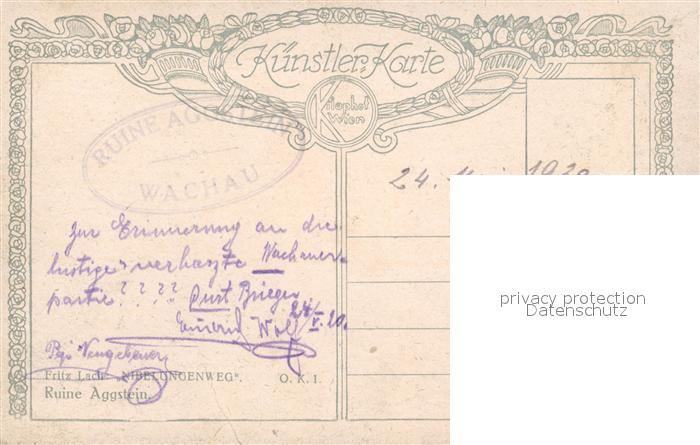 Künstler-Karte
Kilophot
Wien
RUINE AGGSTEIN
WACHAU
24. Mai 1920
Zur Erinnerung an die
lustige verhaxte Wachauer-
partie???? Curt Brieger
Emerich Wolf 24/V. 20.
Pepi Neugebauer
Fritz Lach "NIBELUNGENWEG". O. K. I.
Ruine Aggstein.
privacy protection
Datenschutz